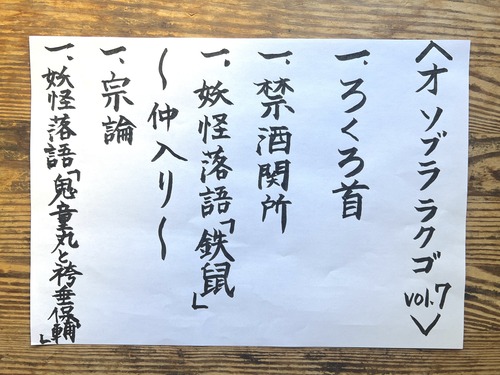 〈オソブララクゴ vol.7〉
一、ろくろ首
一、禁酒関所
一、妖怪落語「鉄鼠」
〜仲入り〜
一、宗論
一、妖怪落語「鬼童丸と袴垂保輔」